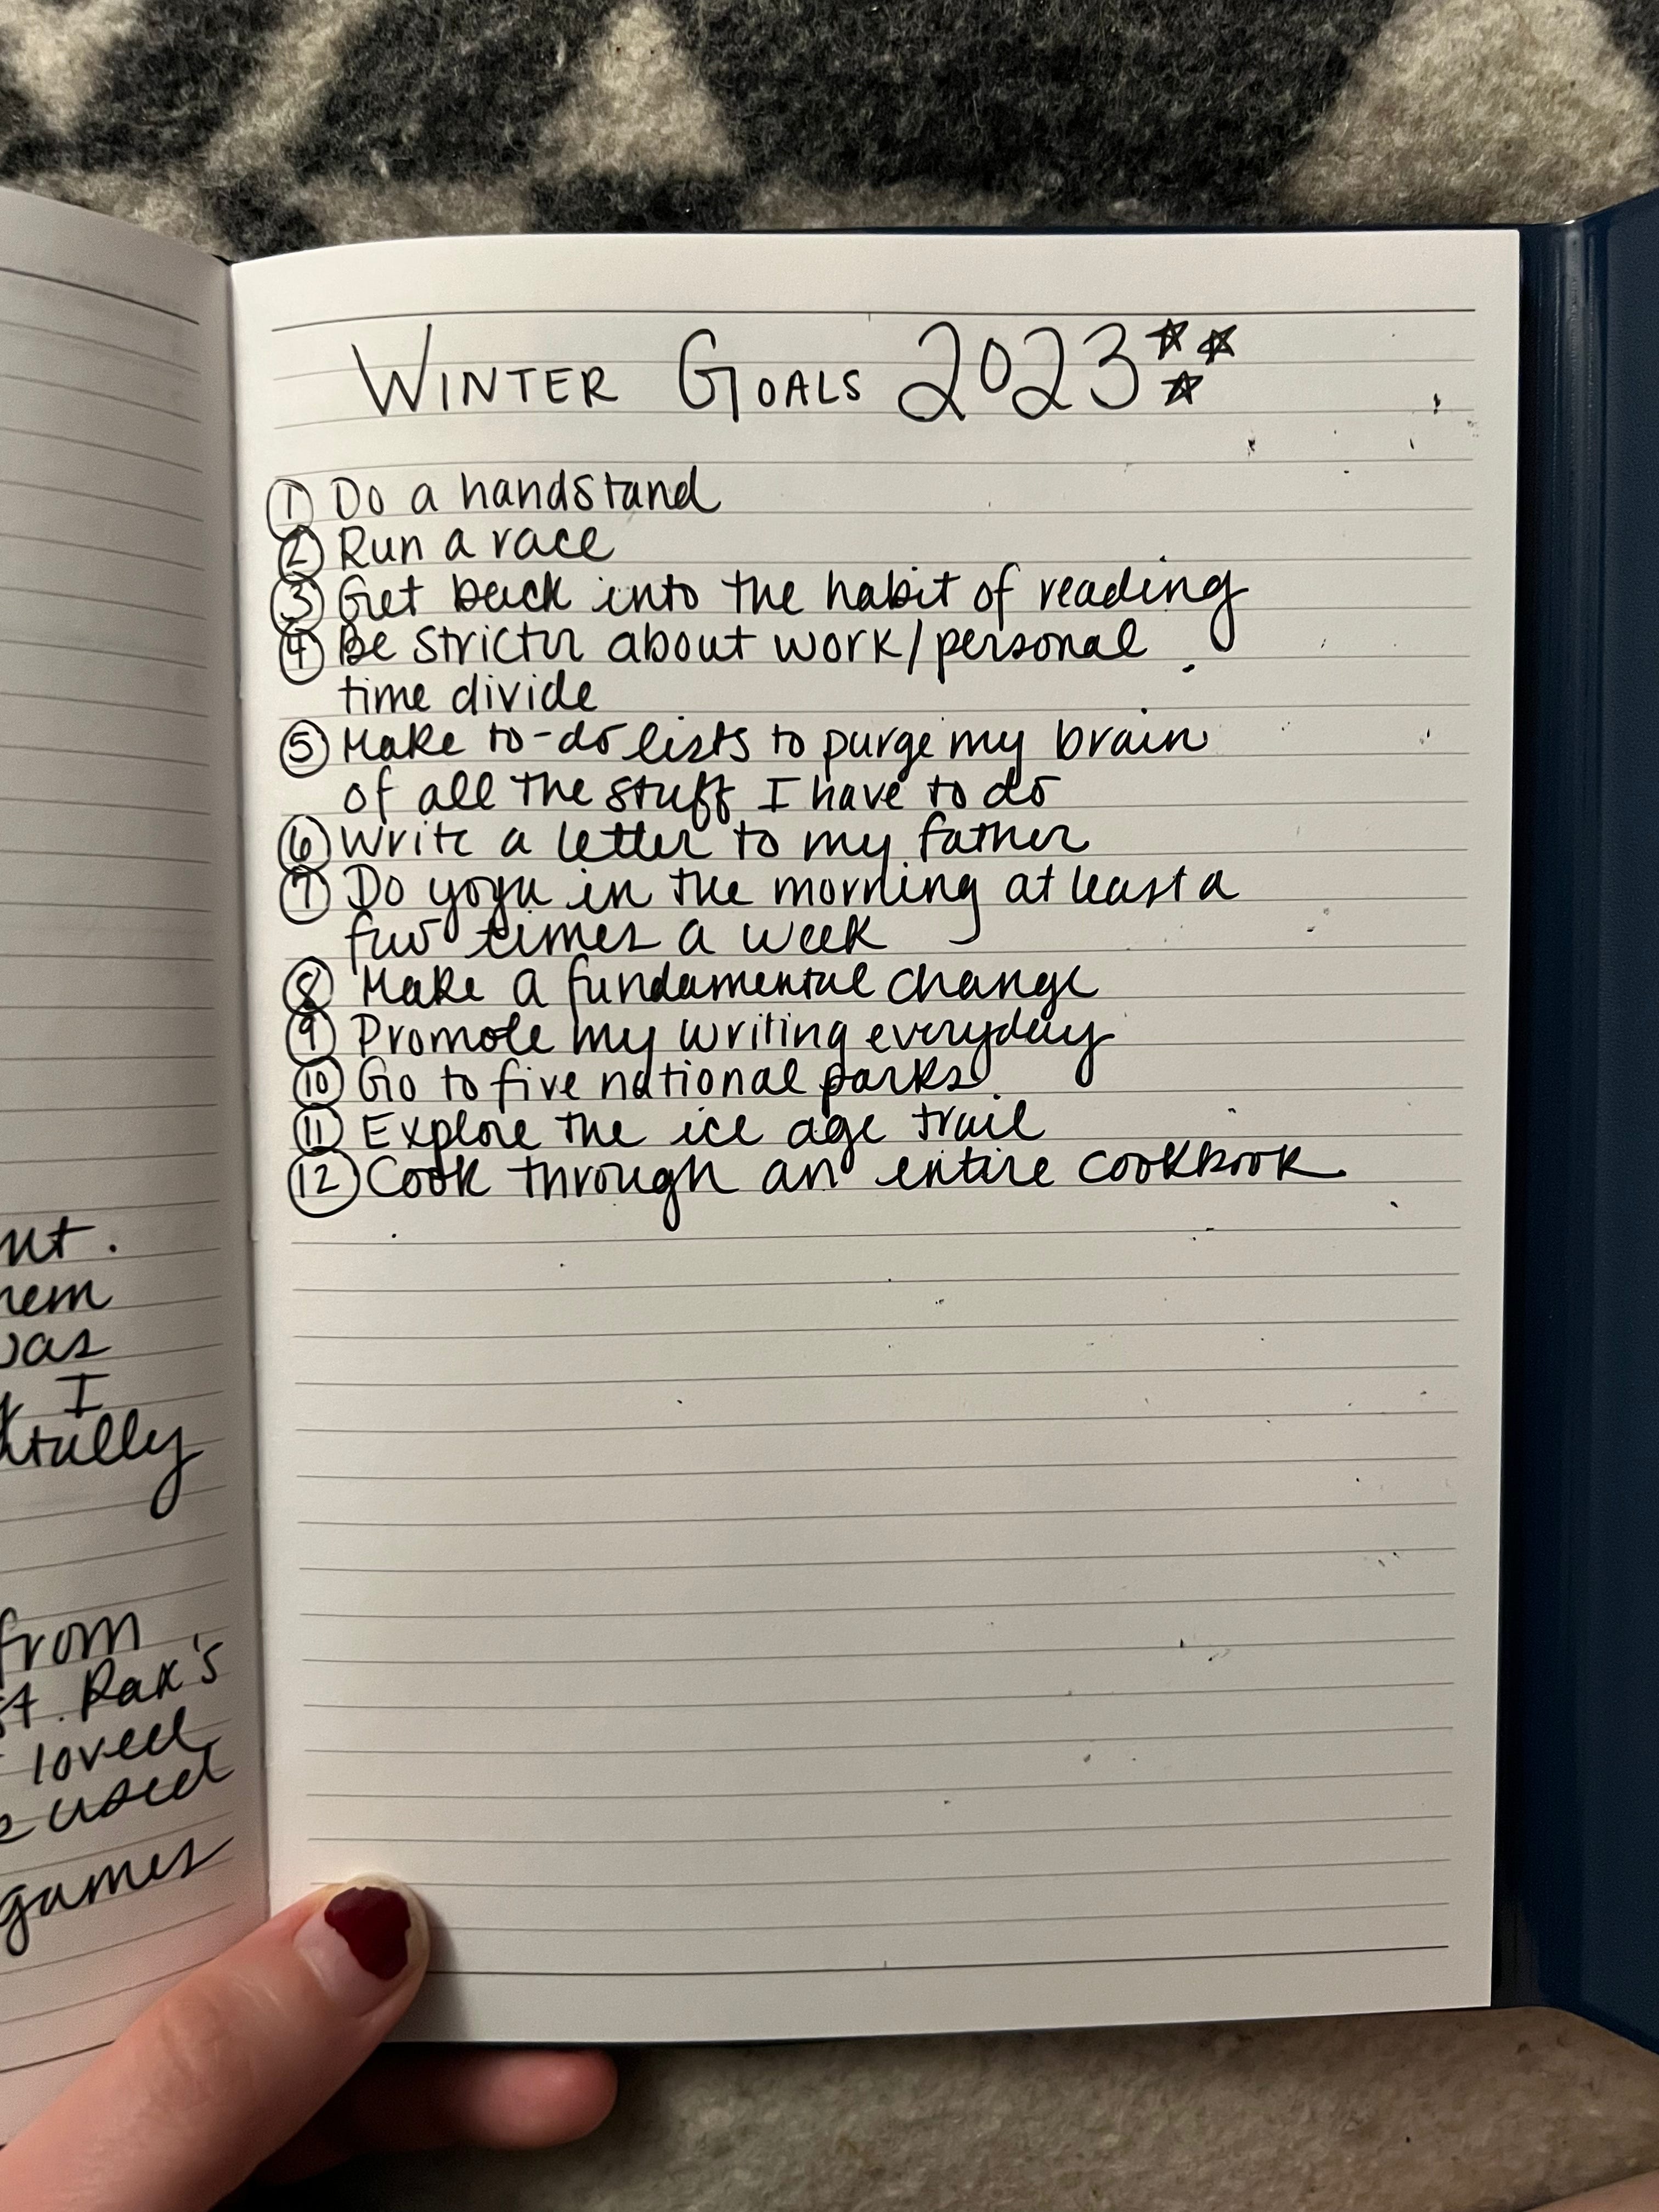 nt.
hem
was
I
tfully
from
st. Rax's
loved
used
games
WINTER GOALS 2023
1 Do a handstand
2 Run a race
3 Get back into the habit of reading
4 Be stricter about work/personal
time divide
5 Make to-do lists to purge my brain
of all the stuff I have to do
6 Write a letter to my father
7 Do yoga in the morning at least a
few times a week
8 Make a fundamental change
9 Promote my writing everyday
10 Go to five national parks
11 Explore the ice age trail
12 Cook through an entire cookbook